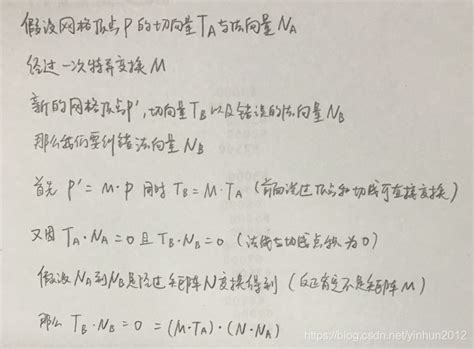 假设网格顶点P的切向量TA与法向量NA
经过一次特异变换M
新的网格顶点P',切向量TB以及错误的法向量NB
那么我们要纠错法向量NB
首先 P' = M·P 同时 TB = M·TA (前面说过顶点和切线可直接变换)
又因 TA·NA = 0 且 TB·NB = 0 (法线与切线点积为0)
假设NA到NB是经过矩阵N变换得到 (反正肯定不是矩阵M)
那么 TB·NB = 0 = (M·TA)·(N·NA)
https://blog.csdn.net/yinhun2012